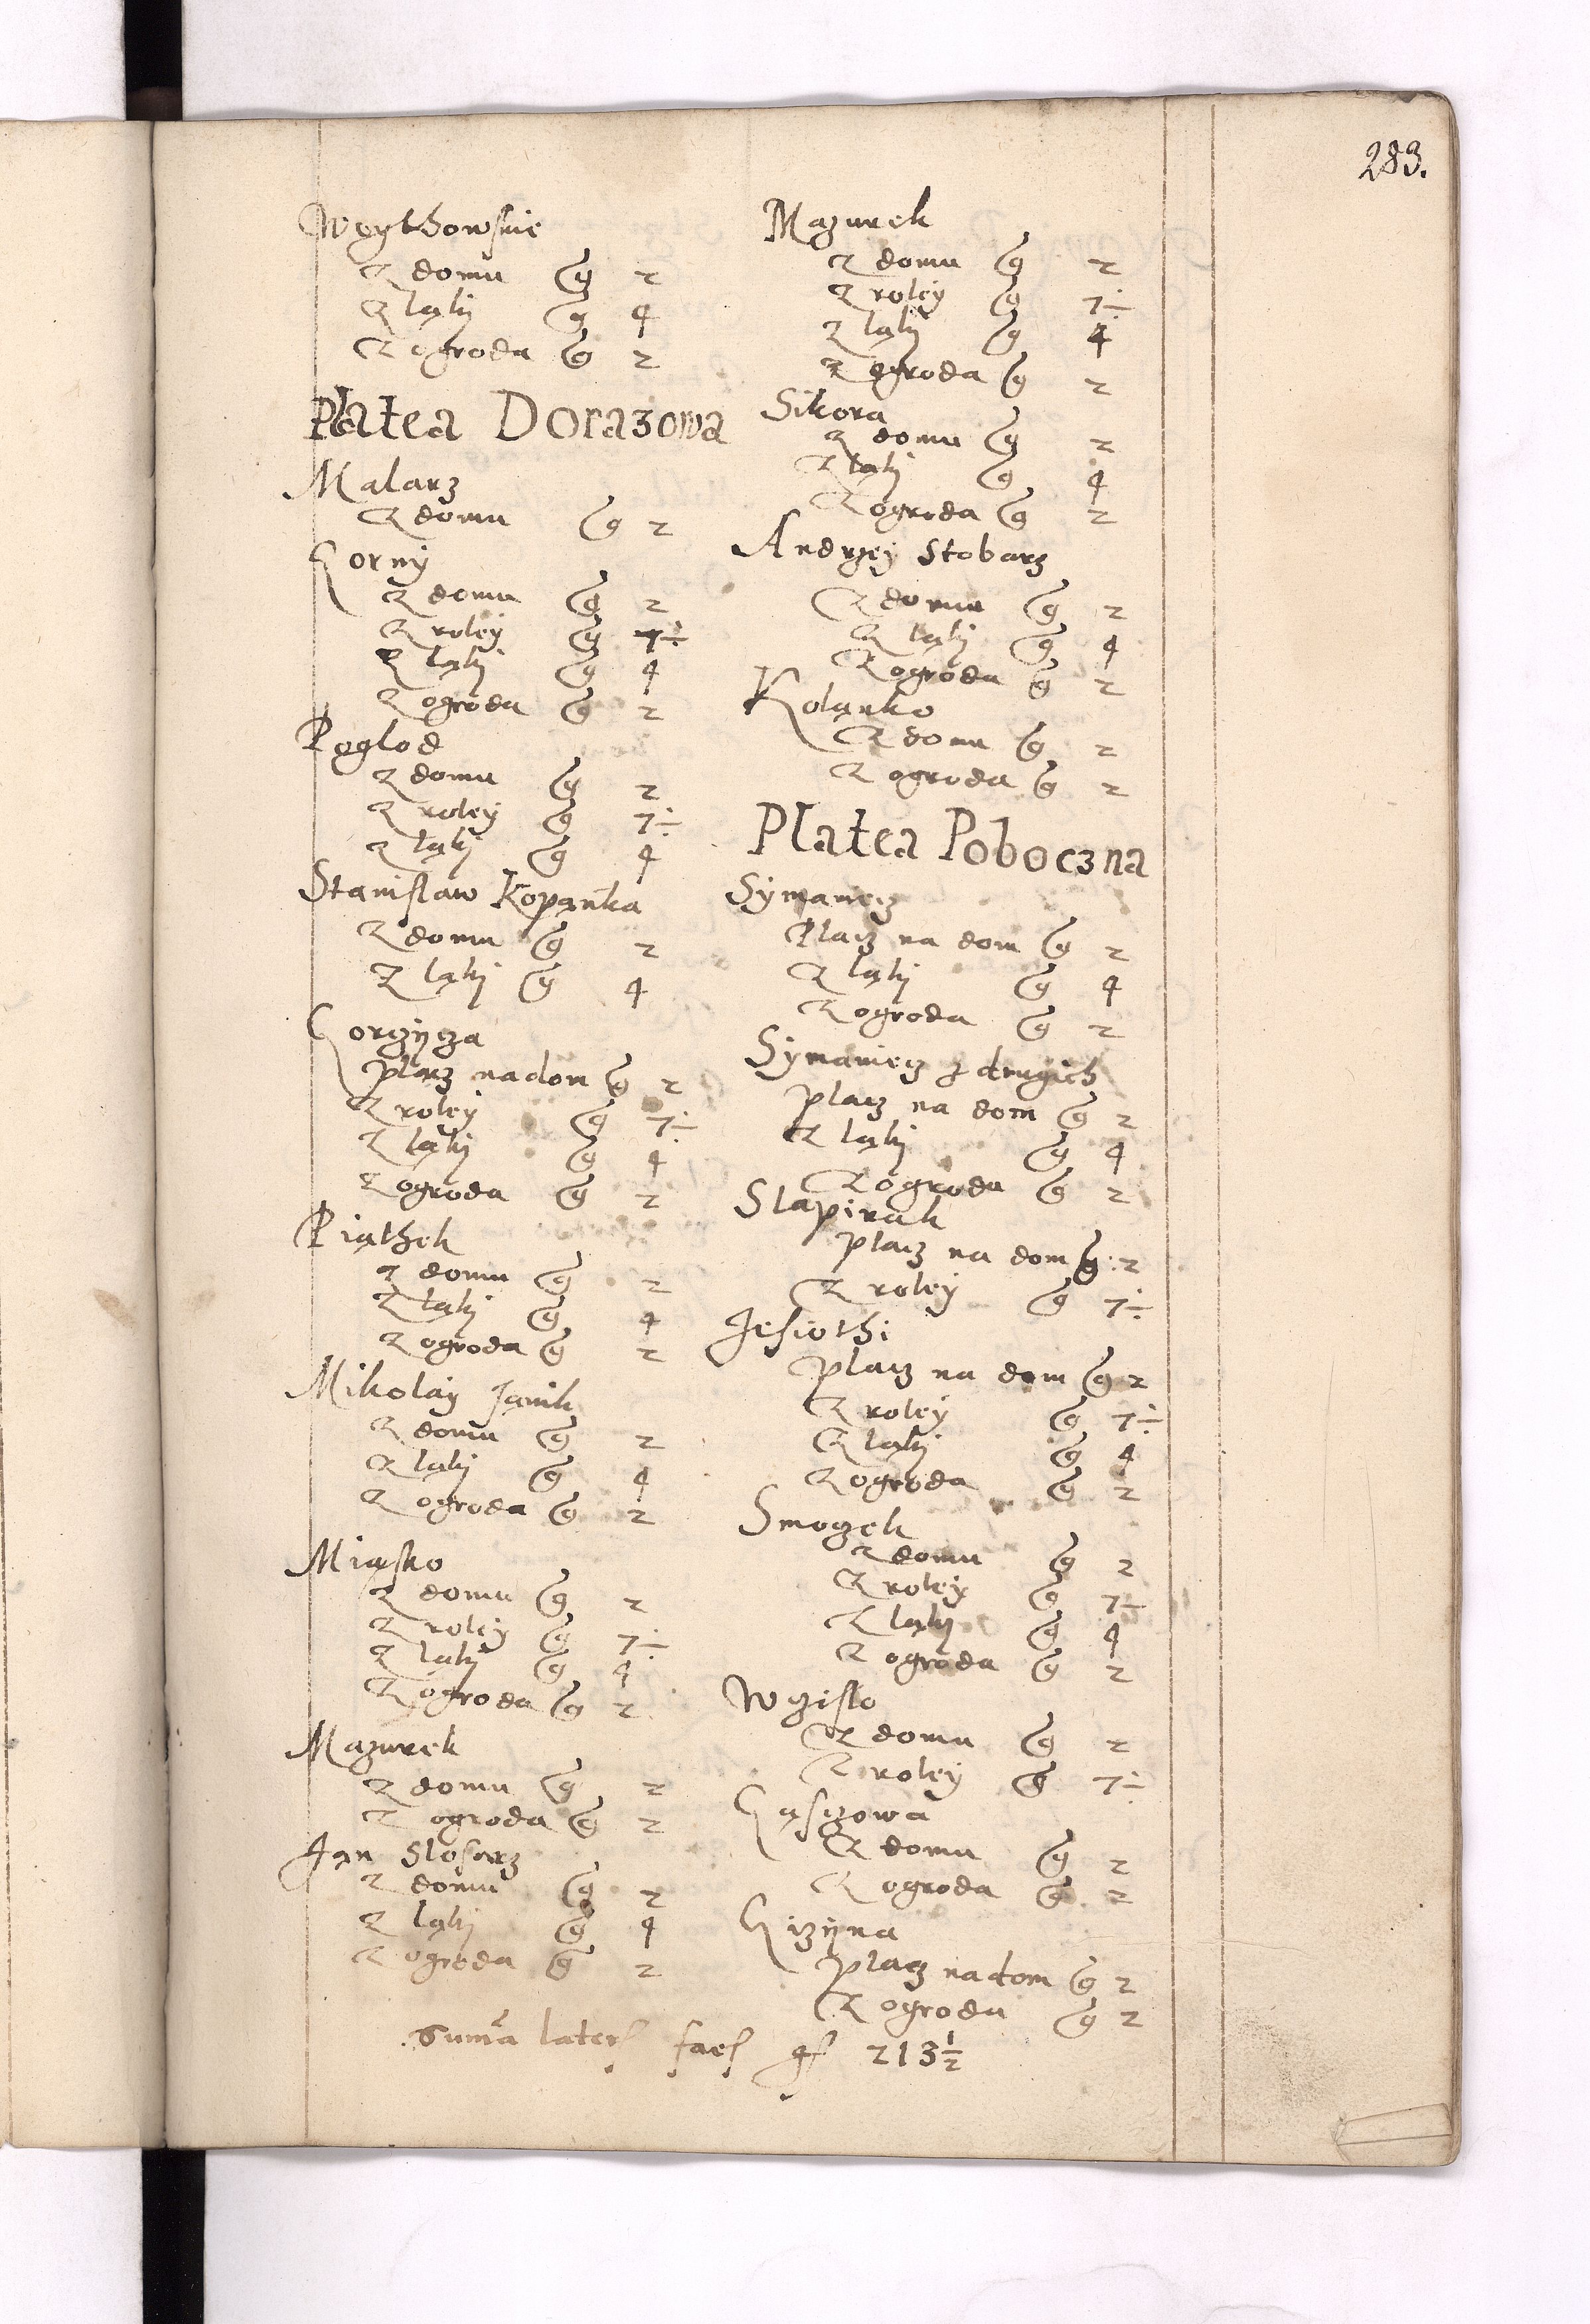 283.
Woythowskie
Z domu g 2
Zląki g 4
Z ogroda g 2
Platea Dorazowa
Malarz
Z domu g 2
Gorny
Z domu g 2
Z roley g 7÷
Z ląki g 4
Z ogroda g 2
Poglod
Z domu g 2
Z roley g 7÷
Z ląki g 4
Stanislaw Kopanka
Z domu g 2
Z ląki g 4
Gorzycza
placz na dom g 2
Z roley g 7÷
Z ląki g 4
Z ogroda g 2
Piąthek
Z domu g 2
Z ląki g 4
Z ogroda g 2
Mikolay Janik
Z domu g 2
Z ląki g 4
Z ogroda g 2
Miąsko
Z domu g 2
Z roley g 7÷
Z ląki g 4
Z ogroda g 2
Mazurek
Z domu g 2
Z ogroda g 2
Jan Slosarz
Z domu g 2
Z ląki g 4
Z ogroda g 2
Mazurek
Z domu g 2
Z roley g 7÷
Z ląki g 4
Z ogroda g 2
Sikora
Z domu g 2
Z ląki g 4
Z ogroda g 2
Andrzej Stobarz
Z domu g 2
Z ląki g 4
Z ogroda g 2
Kolanko
Z domu g 2
Z ogroda g 2
Platea Poboczna
Symaniecz
Placz na dom g 2
Z ląki g 4
Z ogroda g 2
Symaniecz z drugich
placz na dom g 2
Z ląki g 4
Z ogroda g 2
Slapinak
placz na dom g 2
Z roley g 7÷
Jesiothi
placz na dom g 2
Z roley g 7÷
Z ląki g 4
Z ogroda g 2
Smoczek
Z domu g 2
Z roley g 7÷
Z ląki g 4
Z ogroda g 2
Wzisło
Z domu g 2
Z roley g 7÷
Gąsczowa
Z domu g 2
Z ogroda g 2
Gizyna
placz na dom g 2
Z ogroda g 2
Suma laters facs gs 213½